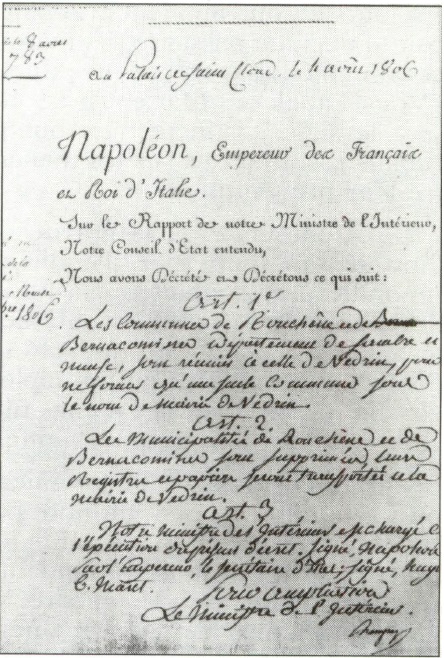 783
au Palais de Saint Cloud, le 4 août 1806
Napoléon, Empereur des Français
et Roi d'Italie.
Sur le Rapport de notre Ministre de l'Intérieur,
Notre Conseil d'Etat entendu,
1806
Nous avons Décrété et Décrétons ce qui suit:
art. 1er
Les Communes de Rouchêne et de
Bernacomine département de Sambre et
meuse, sont réunies à celle de Vedrin, pour
ne former qu'une seule Commune sous
le nom de mairie de Vedrin.
art. 2
Les Municipalités de Rouchêne et de
Bernacomine sont supprimées leurs
Registres et papiers seront transportés à la
mairie de Vedrin.
art. 3
Notre ministre de l'intérieur est chargé
l'exécution du présent décret. signé, napoléon
l'empereur, le secrétaire d'Etat, signé, hugues
B. Maret.
Pour ampliation
Le Ministre de l'Intérieur.